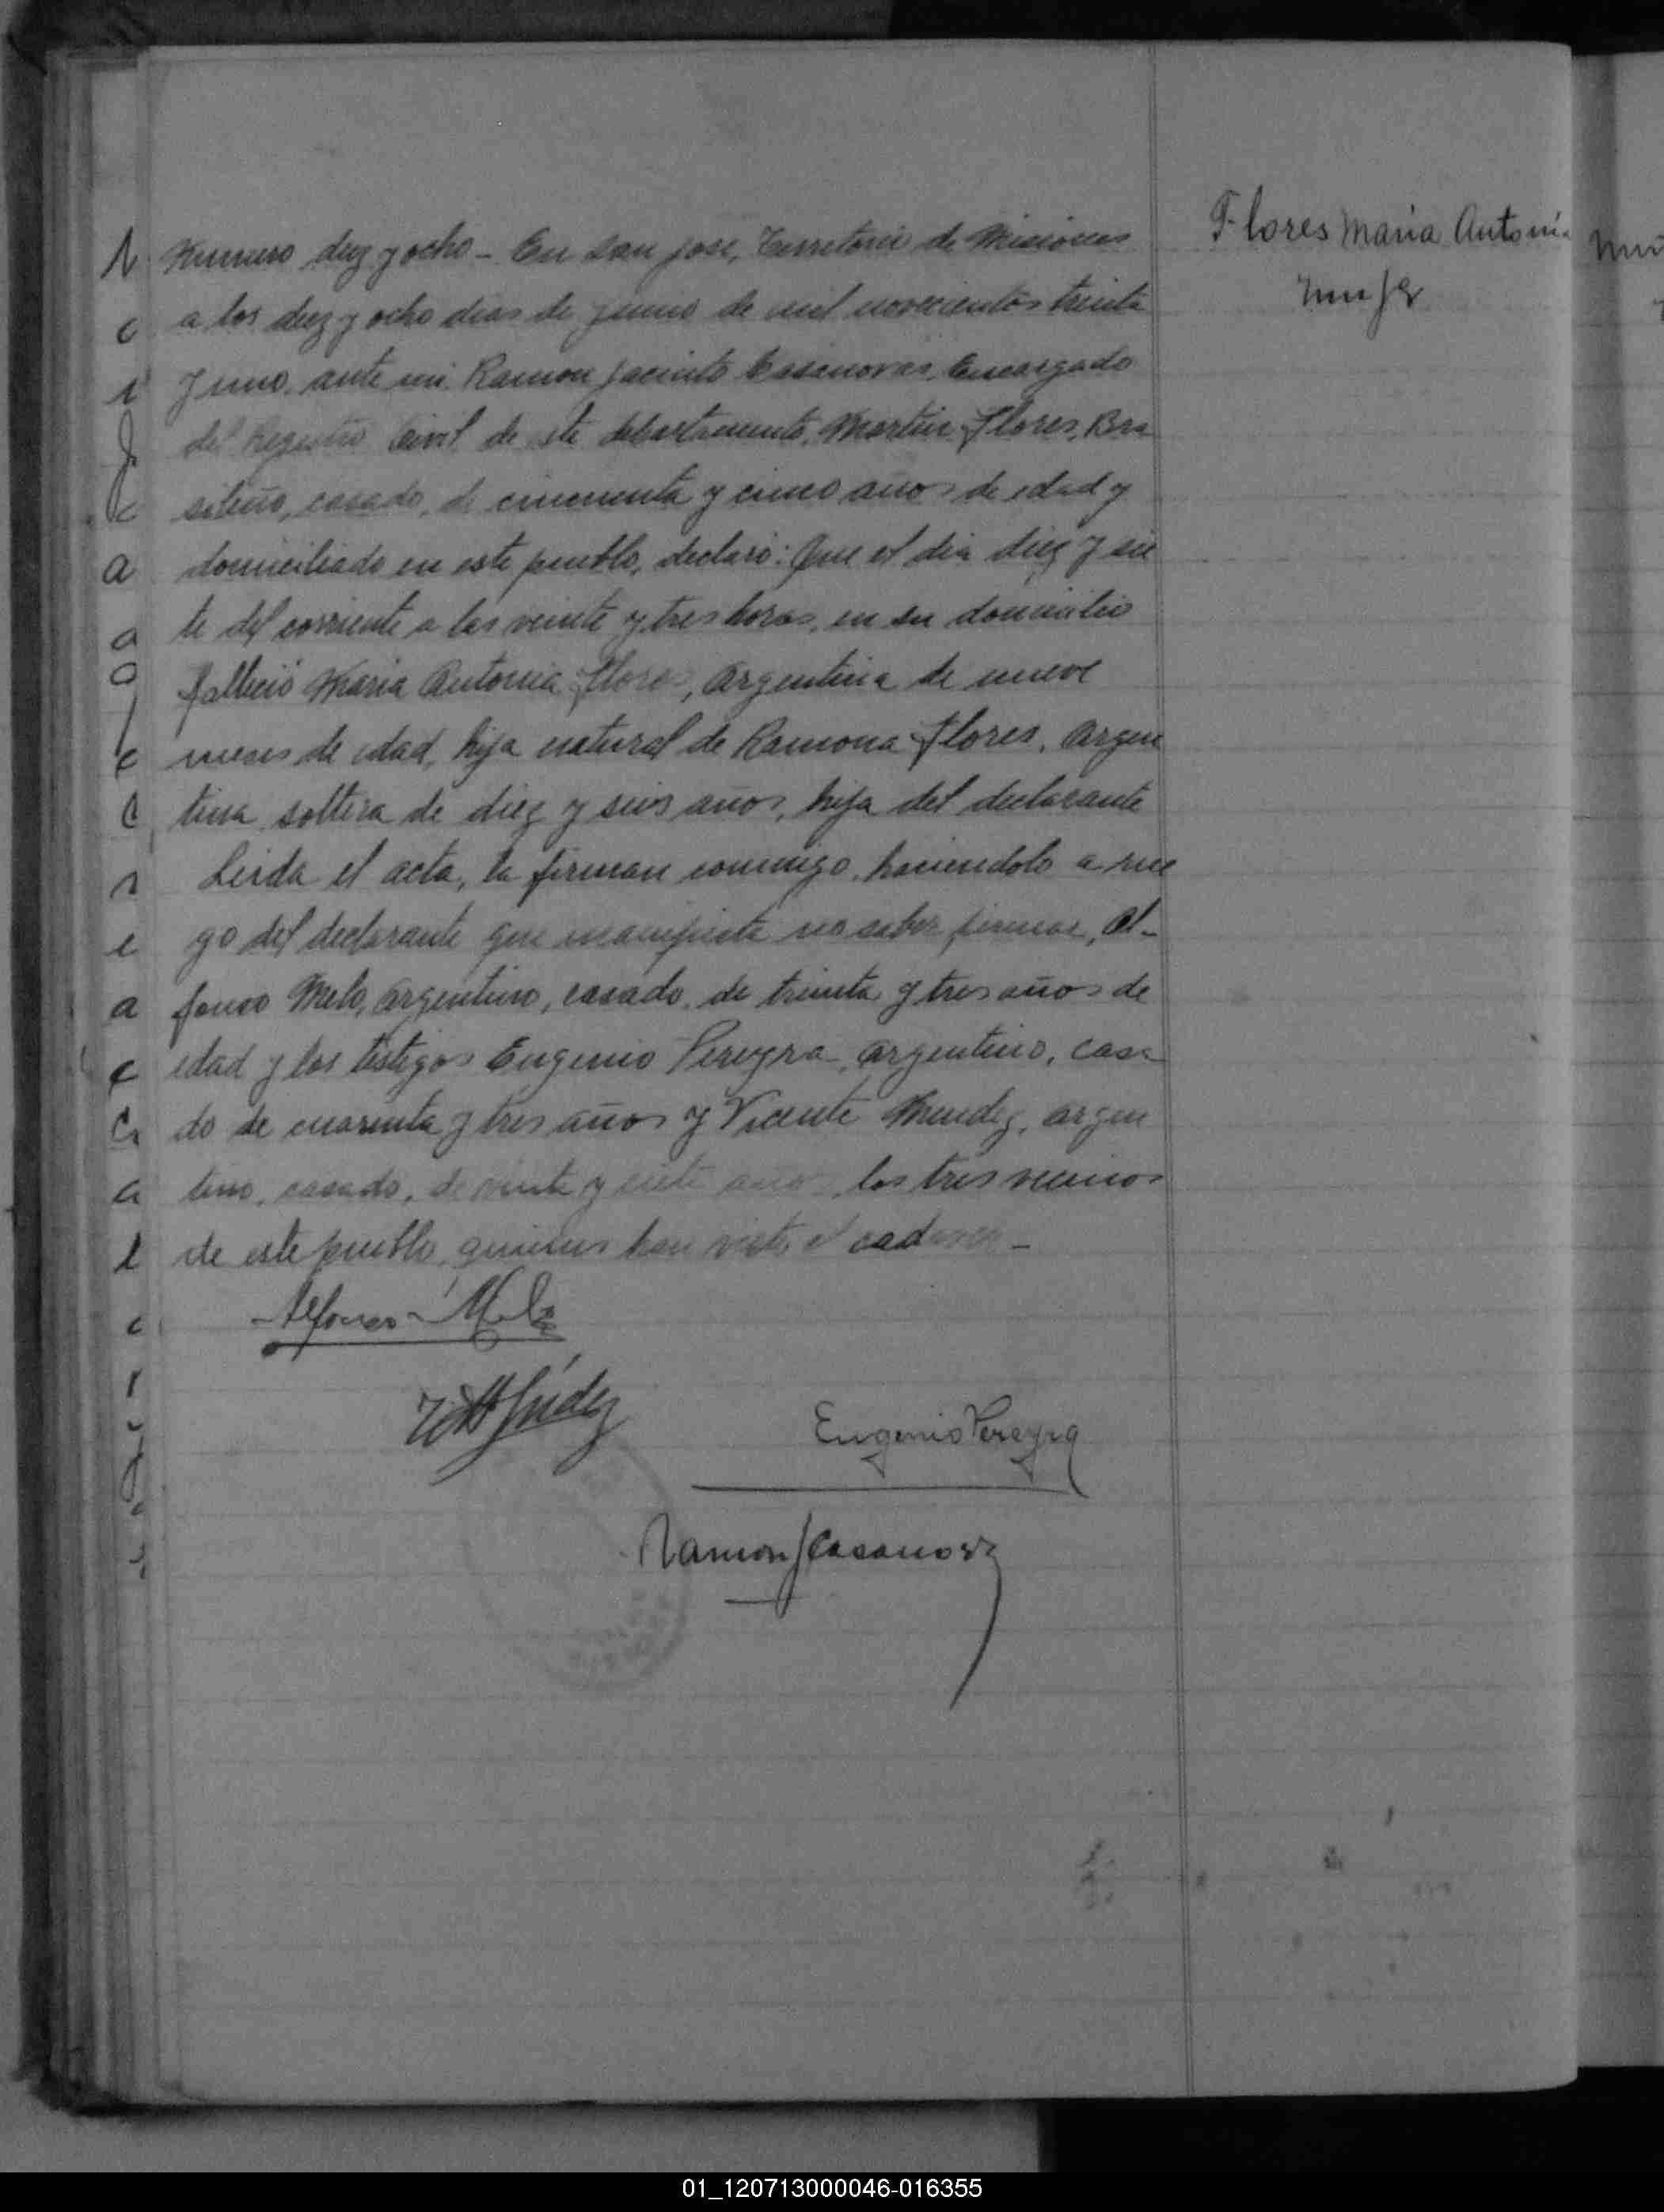 Flores Maria Antonia
Mujer
Numero diez y ocho - En San José, Territorio de Misiones
a los diez y ocho dias de Junio de mil novecientos treinta
y uno, ante mi, Ramon Jacinto Casanovas, Encargado
del Registro Civil de este departamento, Martin Flores, Bra
sileño, casado, de cincuenta y cinco años de edad y
domiciliado en este pueblo, declaró: Que el dia diez y sie
te del corriente a las veinte y tres horas, en su domicilio
falleció Maria Antonia Flores, argentina de nueve
meses de edad, hija natural de Ramona Flores, argen
tina soltera de diez y seis años, hija del declarante
Leida el acta, la firman conmigo, haciendolo a rue
go del declarante que manifiesta no saber firmar, Al-
fonso Melo, argentino, casado, de treinta y tres años de
edad y los testigos Eugenio Pereyra, argentino, casa
do de cuarenta y tres años y Vicente Mendez, argen
tino, casado, de veinte y siete años, los tres vecinos
de este pueblo, quienes han visto el cadaver -
Alfonso Melo
Eugenio Pereyra
Ramon J Casanovas
01_120713000046-016355